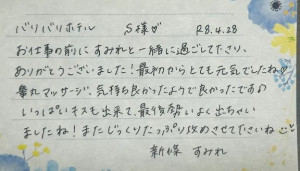 バリバリホテル S様♂ R8.4.28
お仕事の前にすみれと一緒に過ごして下さり、
ありがとうございました!最初からとても元気でしたね♡
睾丸マッサージ、気持ち良かったようで良かったですの
いっぱいキスも出来て、最後勢いよく出ちゃい
ましたね!またじっくりたっぷり攻めさせてさいね
新條 すみれ